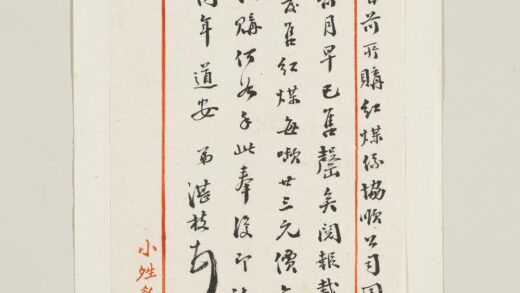 前所購紅煤係協順公司
前月早已售罄矣閱報載
售紅煤每噸廿三元價
購何如手此奉復即
年道安 弟湛枝
小姓